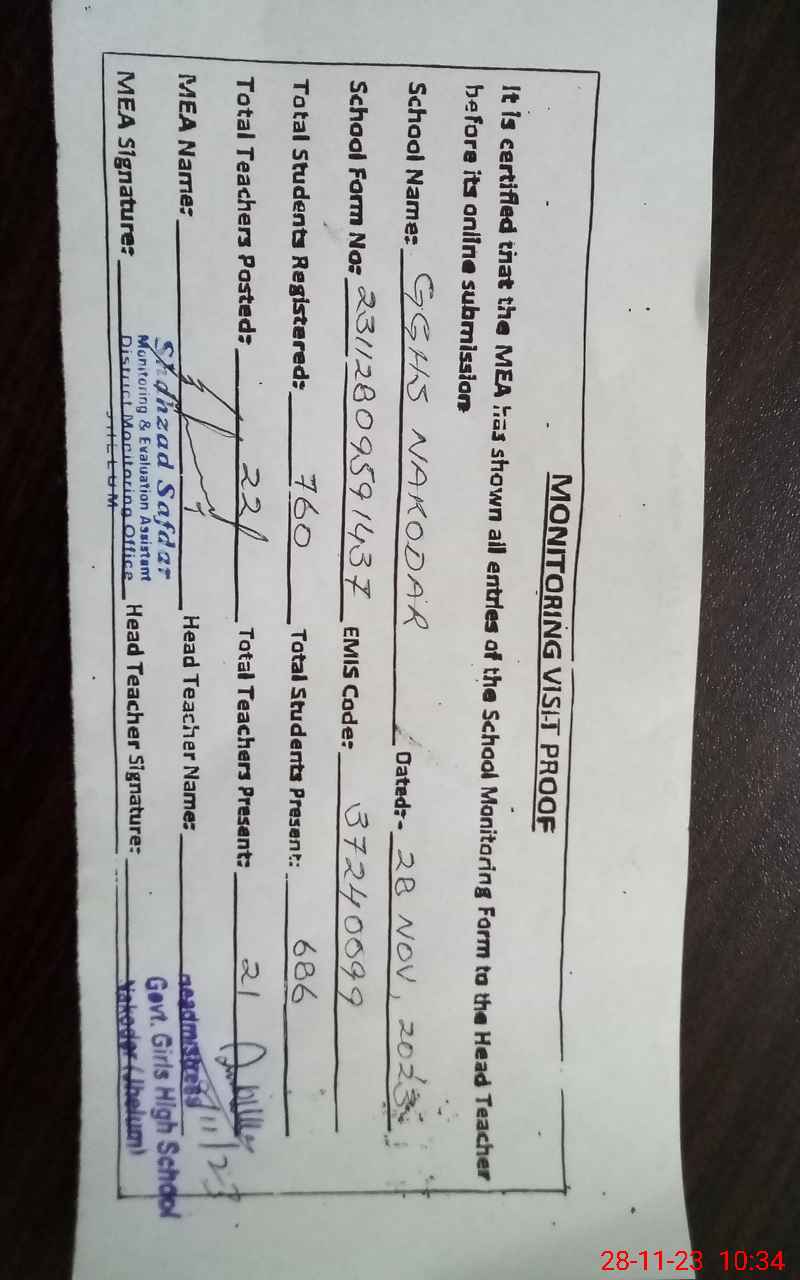 MONITORING VISIT PROOF
It is certified that the MEA has shown all entries of the School Monitoring Form to the Head Teacher
before its online submission
School Name: GGHS NAKODAR Dated:- 28 NOV, 2023
School Form No: 23112809591437 EMIS Code: 37240099
Total Students Registered: 760 Total Students Present: 686
Total Teachers Posted: 22 Total Teachers Present: 21
MEA Name: Head Teacher Name:
MEA Signature: Head Teacher Signature:
Shahzad Safdar
Monitoring & Evaluation Assistant
District Monitoring Office
JHELUM
Headmistress
Govt. Girls High School
Nakodar (Jhelum)
28-11-23 10:34